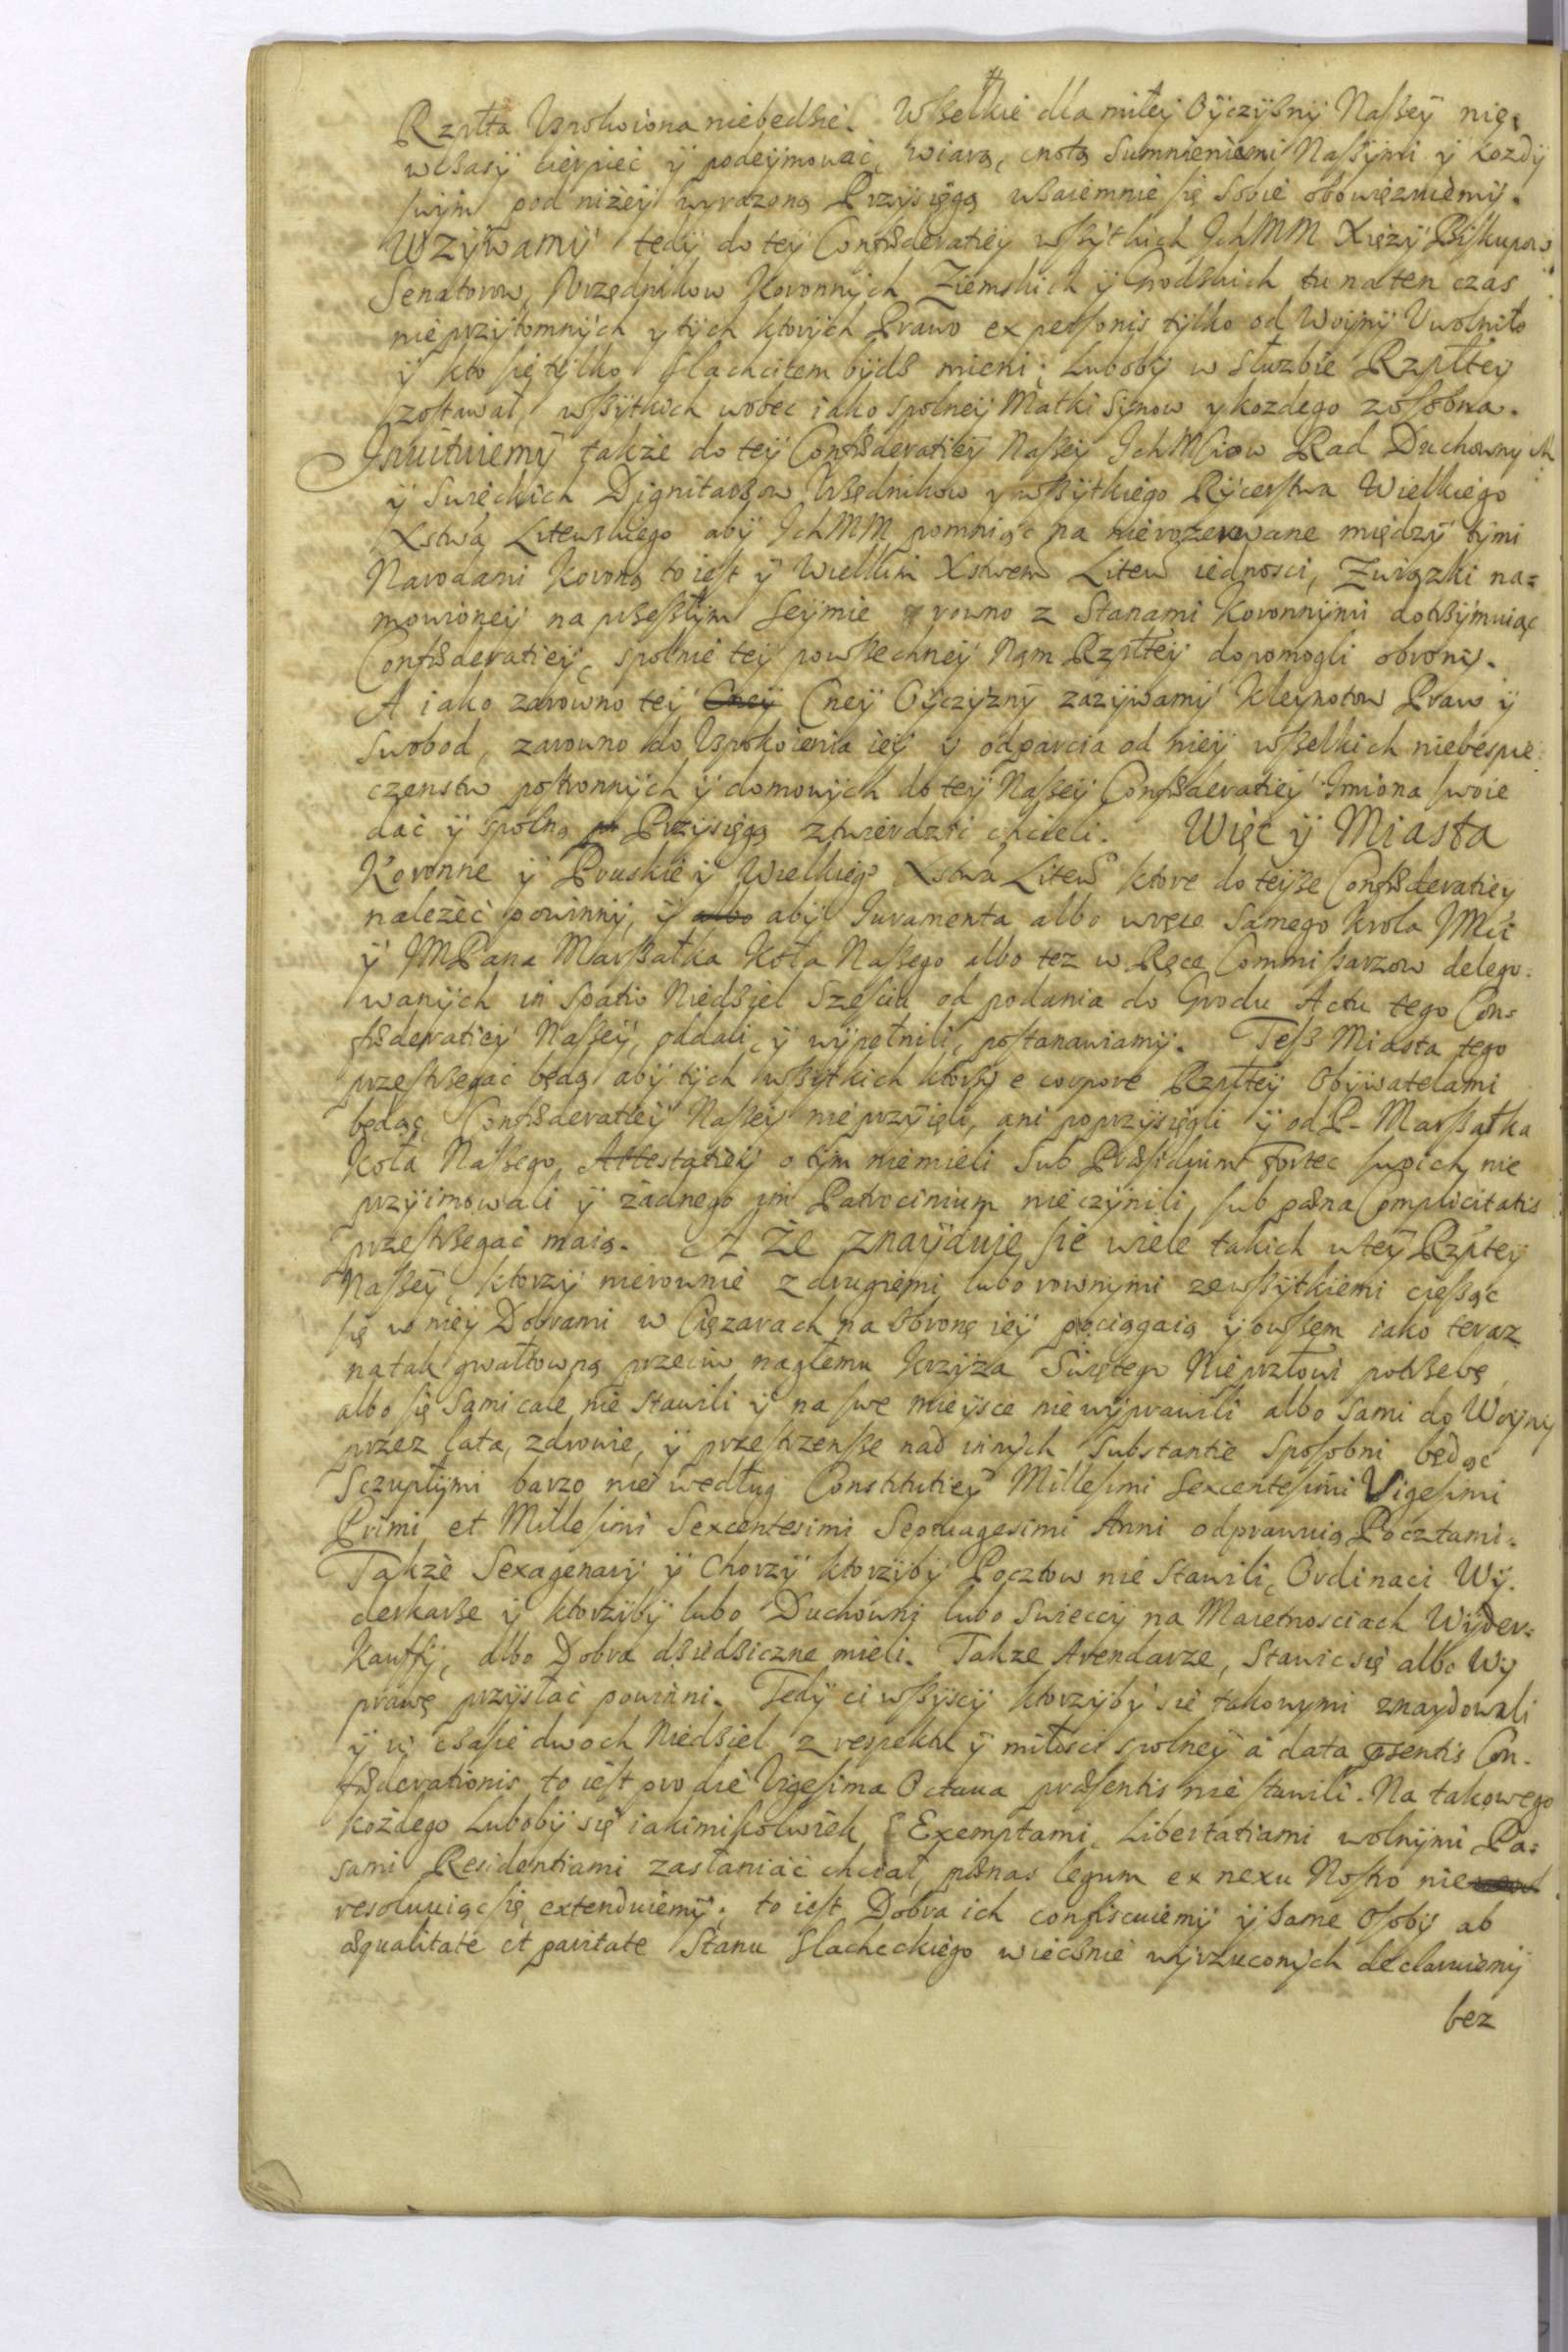 Rzpłta Uspokoiona niebędzie. Wszelkie dla miłey Oyczyzny Naszey nie,
wczasy cierpieć y podeymować, wiarą, cnotą Sumnieniami Naszymi y kozdy
swym pod niżey wyrazoną Przysięgą wzaiemnie się Sobie obowięzuiemy.
Wzywamy tedy do tey Confæderatiey wszytkich IchMM Xięzy Biskupow
Senatorow, Urzędnikow Koronnych Ziemskich y Grodzkich tu na ten czas
nieprzytomnych y tych ktorych Prawo ex personis tylko od Woyny Uwolniło
y kto się tylko slachcicem bydz mieni; Luboby w Służbie Rzpltey
zostawał, wszytkich wobec iako Spolney Matki Synow y kozdego zosobna.
Invituiemy także do tey Confæderatiey Naszey IchMciow Rad Duchownych
y Swieckich Dignitarzow Urzędnikow y wszytkiego Rycerstwa Wielkiego
Xstwa Litewskiego aby IchMM pomniąc na nierozerwane między tymi
Narodami Koroną to iest y Wielkim Xstwem Litew iednosci, Związki na=
mowioney na przeszłym Seymie rowno z Stanami Koronnymi dotrzymuiąc
Confæderatiey, spolnie tey powszechney Nam Rzpltey dopomogli obrony.
A iako zarowno tey Cney Cney Oyczyzny zazywamy Kleynotow Praw y
Swobod, zarowno do Uspokoienia iey y odparcia od niey wszelkich niebespie
czenstw postronnych y domowych do tey Naszey Confæderatiey Imiona swoie
dać y spolną Przysięgą ztwierdzić chcieli. Więc y Miasta
Koronne y Pruskie y Wielkiego Xstwa Litew ktore do teyze Confæderatiey
należeć powinny, y albo aby Iuramenta albo wręce Samego Krola JMci
y JMPana Marszałka Koła Naszego albo tez w Ręce Commissarzow delego.
wanych in Spatio Niedziel Szesciu od podania do Grodu Actu tego Con=
fæderatiey Naszey, oddali, y wypełnili, postanawiamy. Tesz Miasta tego
przestrzegać będą aby tych wszytkich ktorzy e corpore Rzpltey Obywatelami
będąc, Confæderatiey Naszey nieprzyięli, ani poprzysięgli y od P. Marszałka
Koła Naszego, Attestatiey o tym niemieli Sub Præsidium Fortec swoich nie
przyimowali y żadnego im Patrocinium nieczynili, sub pæna Complicitatis
przestrzegać maią. A Że znayduie sie wiele takich wtey Rzpltey
Naszey, ktorzy nierownie z drugiemi lubo rownymi zewszytkiemi ciesząc
się w niey Dobrami w Cięzarach na obronę iey pociągaią y owszem iako teraz
natak gwałtowną przeciw nagłemu Krzyża Świętego Nieprzłowi potrzebę
albo się Sami cale nie Stawili y na swe mieysce niewyprawili albo Sami do Woyny
przez lata, zdrowie, y przestrzensze nad innych Substantie Sposobni będąc
Szczupłymi barzo nie według Constitutiey Millesimi Sexcentesimi Vigesimi
Primi et Millesimi Sexcentesimi Septuagesimi Anni odprawuią Pocztami.
Także Sexagenary y Chorzy ktorzyby Pocztow nie Stawili, Ordinaci Wy.
derkarze y ktorzyby lubo Duchowni lubo Swieccy na Maietnosciach Wyder=
kauffy, albo Dobra dziedziczne mieli. Takze Arendarze, Stawic się albo Wy
prawę przysłać powinni. Tedy ci wszyscy ktorzyby sie takowymi znaydowali
y w czasie dwoch Niedziel z respektu y miłosci spolney a data præsentis Con-
fæderationis to iest pro die Vigesima Octaua præsentis nie stawili. Na takowego
kożdego Luboby się iakimikolwiek Exemptami, Libertatiami wolnymi Pa=
sami Residentiami zasłaniać chciał, pænas legum ex nexu Nostro nie
resoluuiąc się, extenduiemy; to iest Dobra ich confiscuiemy y same Osoby ab
æqualitate et paritate Stanu Slacheckiego wiecznie wyrzuconych declaruiemy
bez